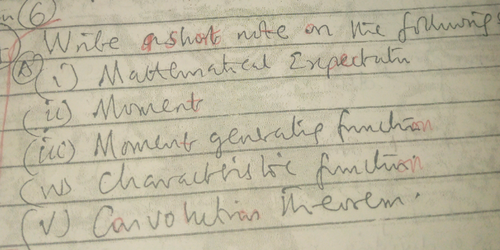 n(6)
Write a short note on the following
(A) (i) Mathematical Expectatn
(ii) Moment
(iii) Moment generating function
(iv) Characteristic function
(v) Convolution Theorem.